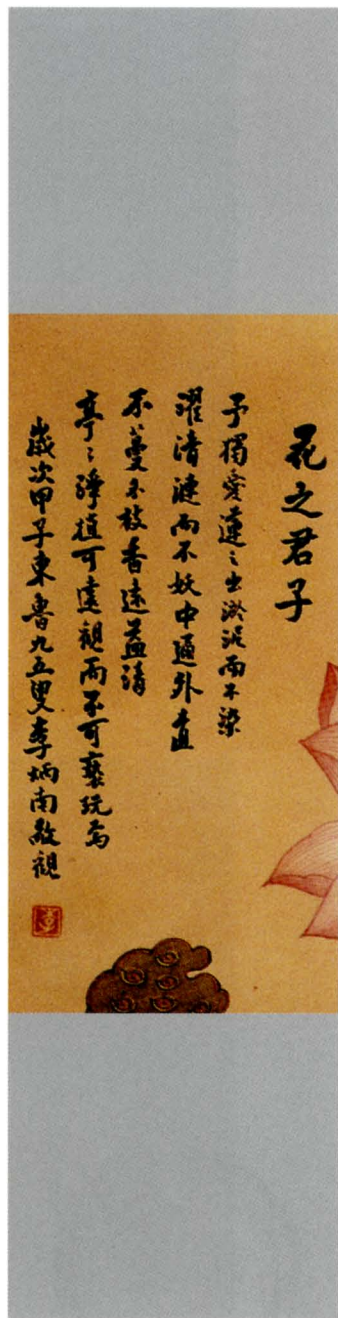 花之君子
予獨愛蓮之出淤泥而不染
濯清漣而不妖中通外直
不蔓不枝香遠益清
亭亭淨植可遠觀而不可褻玩焉
歲次甲子東魯九五叟李炳南敬觀
李